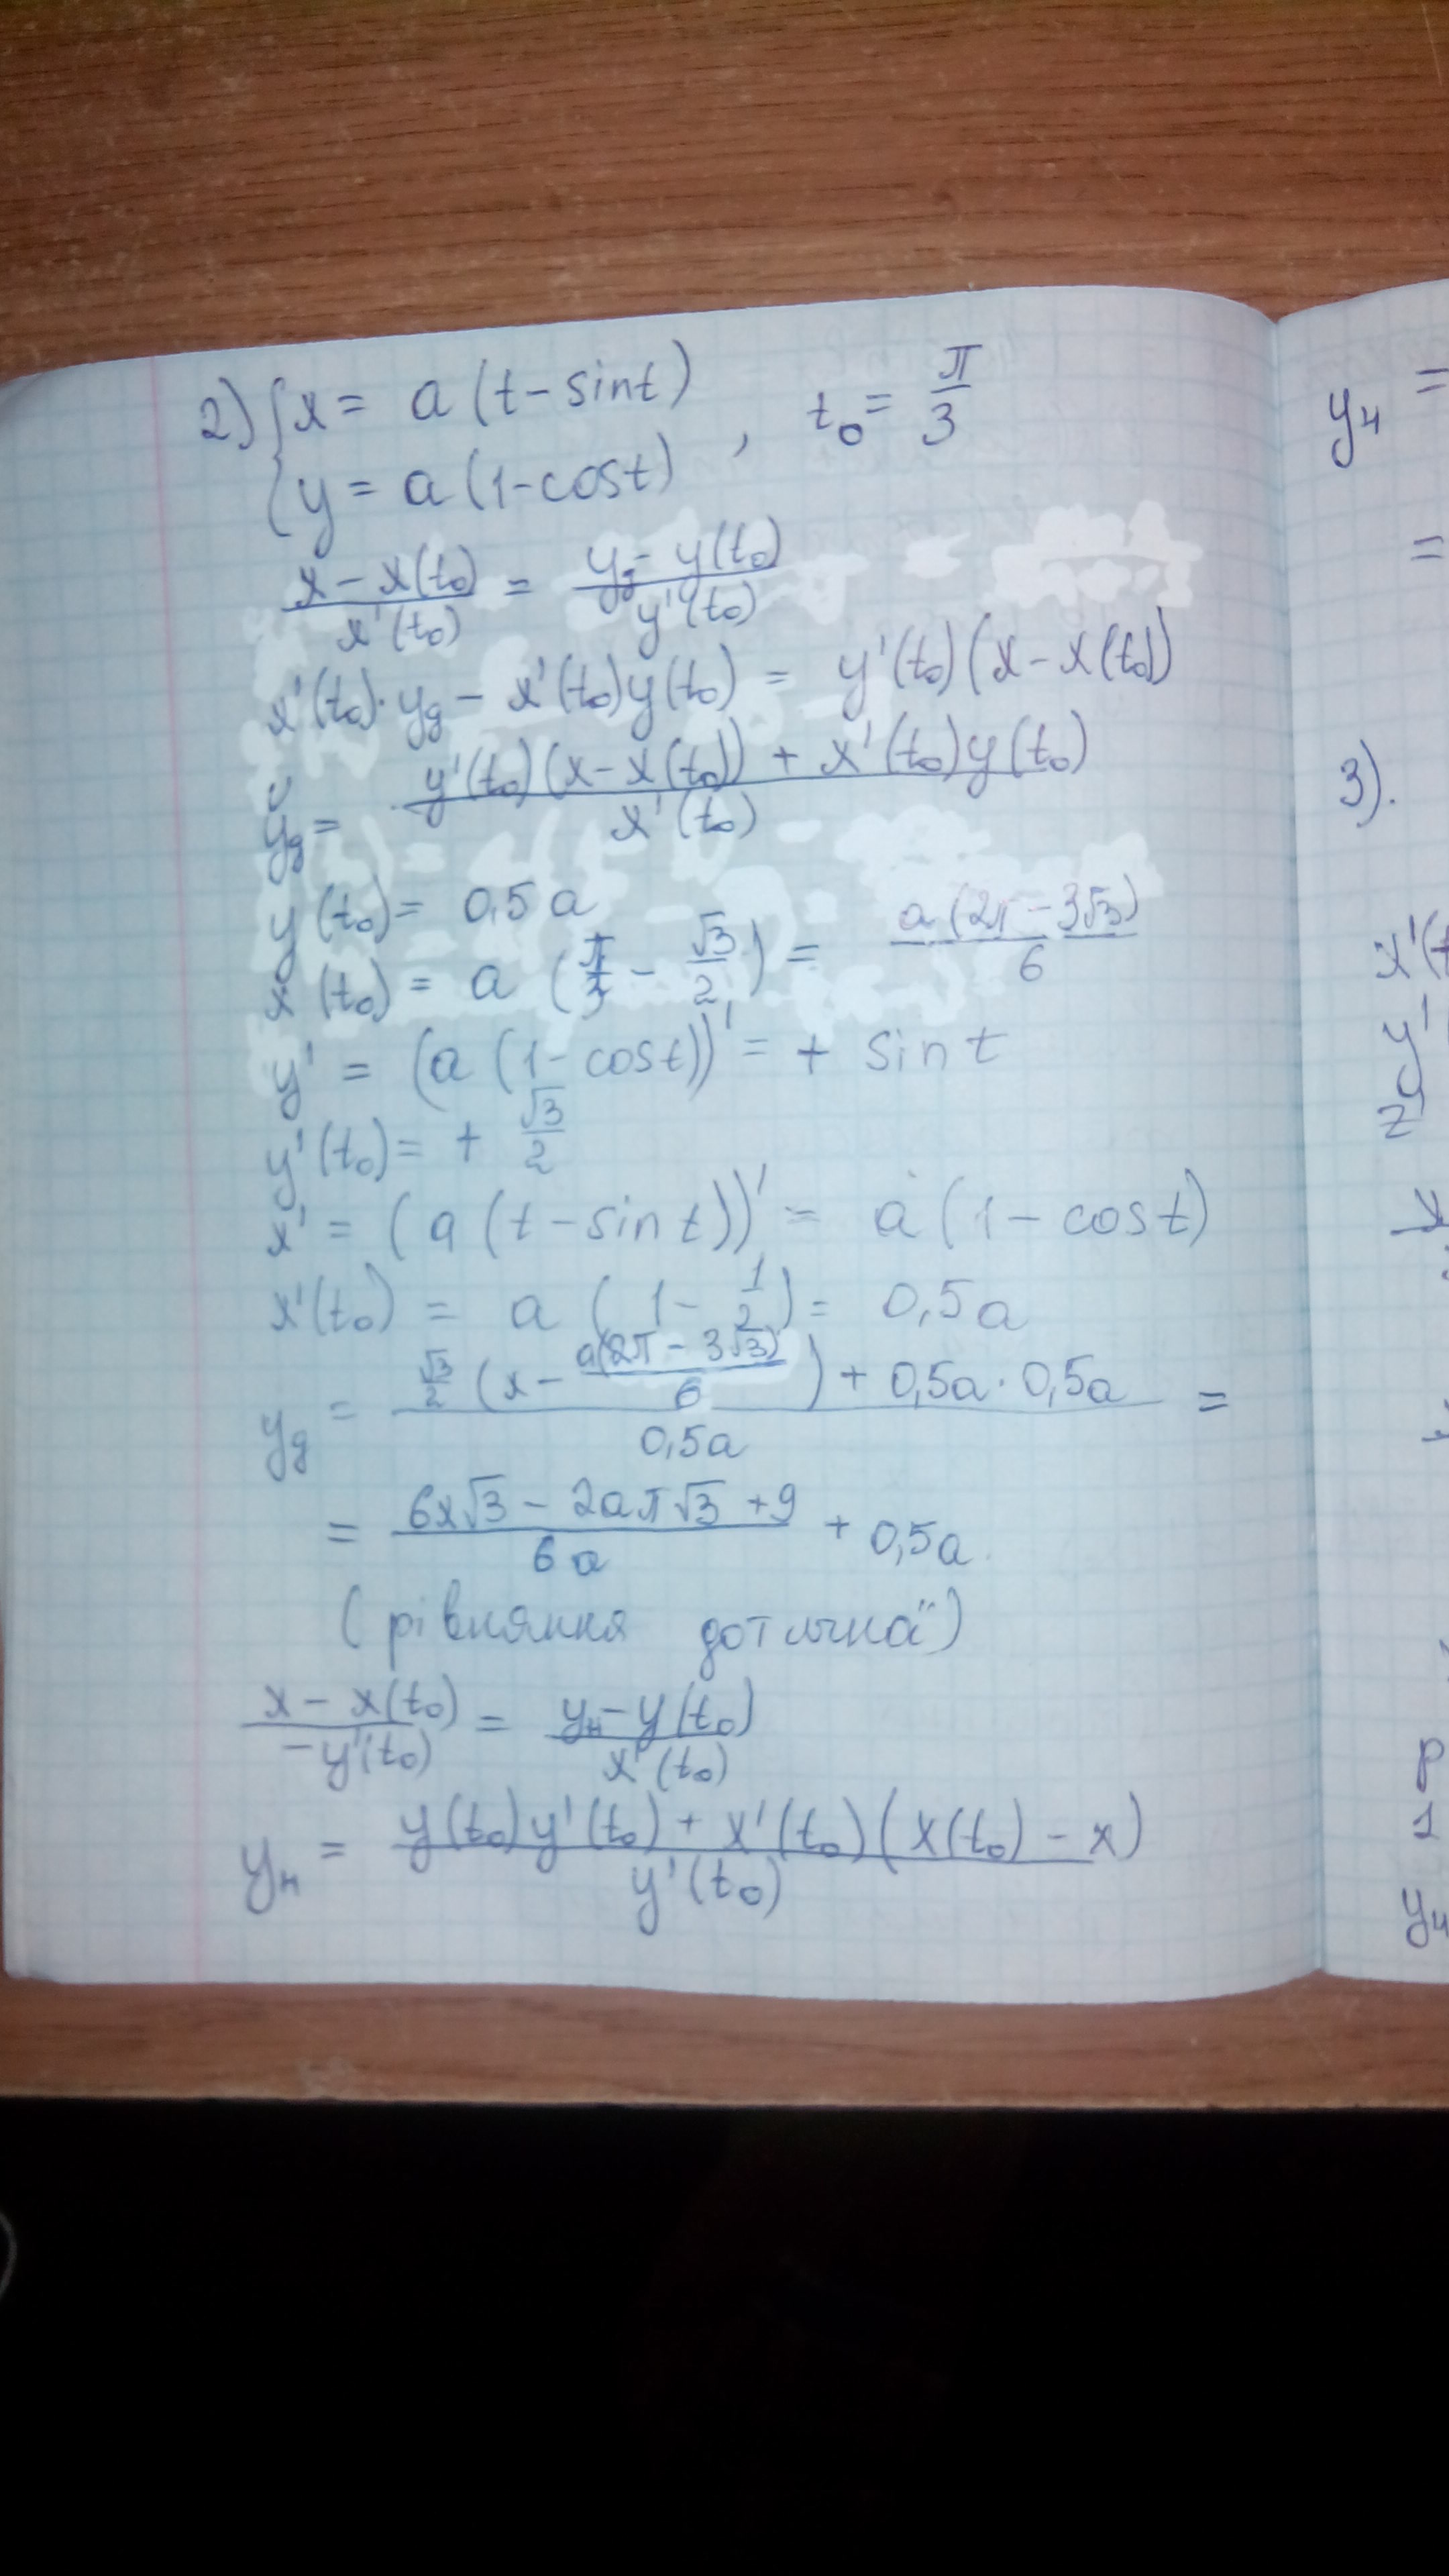 2) { x = a (t - sint)
y = a (1 - cost) , t₀ = π/3
(x - x(t₀))/(x'(t₀)) = (y_g - y(t₀))/(y'(t₀))
x'(t₀)·y_g - x'(t₀)y(t₀) = y'(t₀)(x - x(t₀))
y_g = (y'(t₀)(x - x(t₀)) + x'(t₀)y(t₀))/(x'(t₀))
y(t₀) = 0,5a
x(t₀) = a (π/3 - √3/2) = a(2π - 3√3)/6
y' = (a (1 - cost))' = + sint
y'(t₀) = + √3/2
x' = (a (t - sint))' = a (1 - cost)
x'(t₀) = a (1 - 1/2) = 0,5a
y_g = (√3/2 (x - a(2π - 3√3)/6) + 0,5a · 0,5a)/(0,5a) =
= (6x√3 - 2aπ√3 + 9)/(6a) + 0,5a
(рівняння дотичної)
(x - x(t₀))/(-y'(t₀)) = (yн - y(t₀))/(x'(t₀))
yн = (y(t₀)y'(t₀) + x'(t₀)(x(t₀) - x))/(y'(t₀))
yн =
=
3).
x'(t
y'
z'